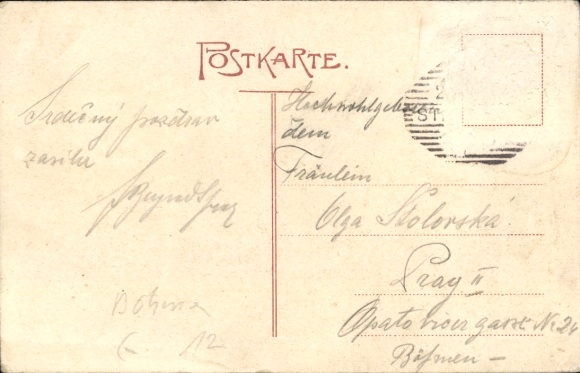 POSTKARTE.
Srdečný pozdrav
zasílá
Hochwohlgeboren
dem
Fräulein
Olga Stolovská.
Prag II
Opatovicergasse Nr 24
Böhmen –
12
ST